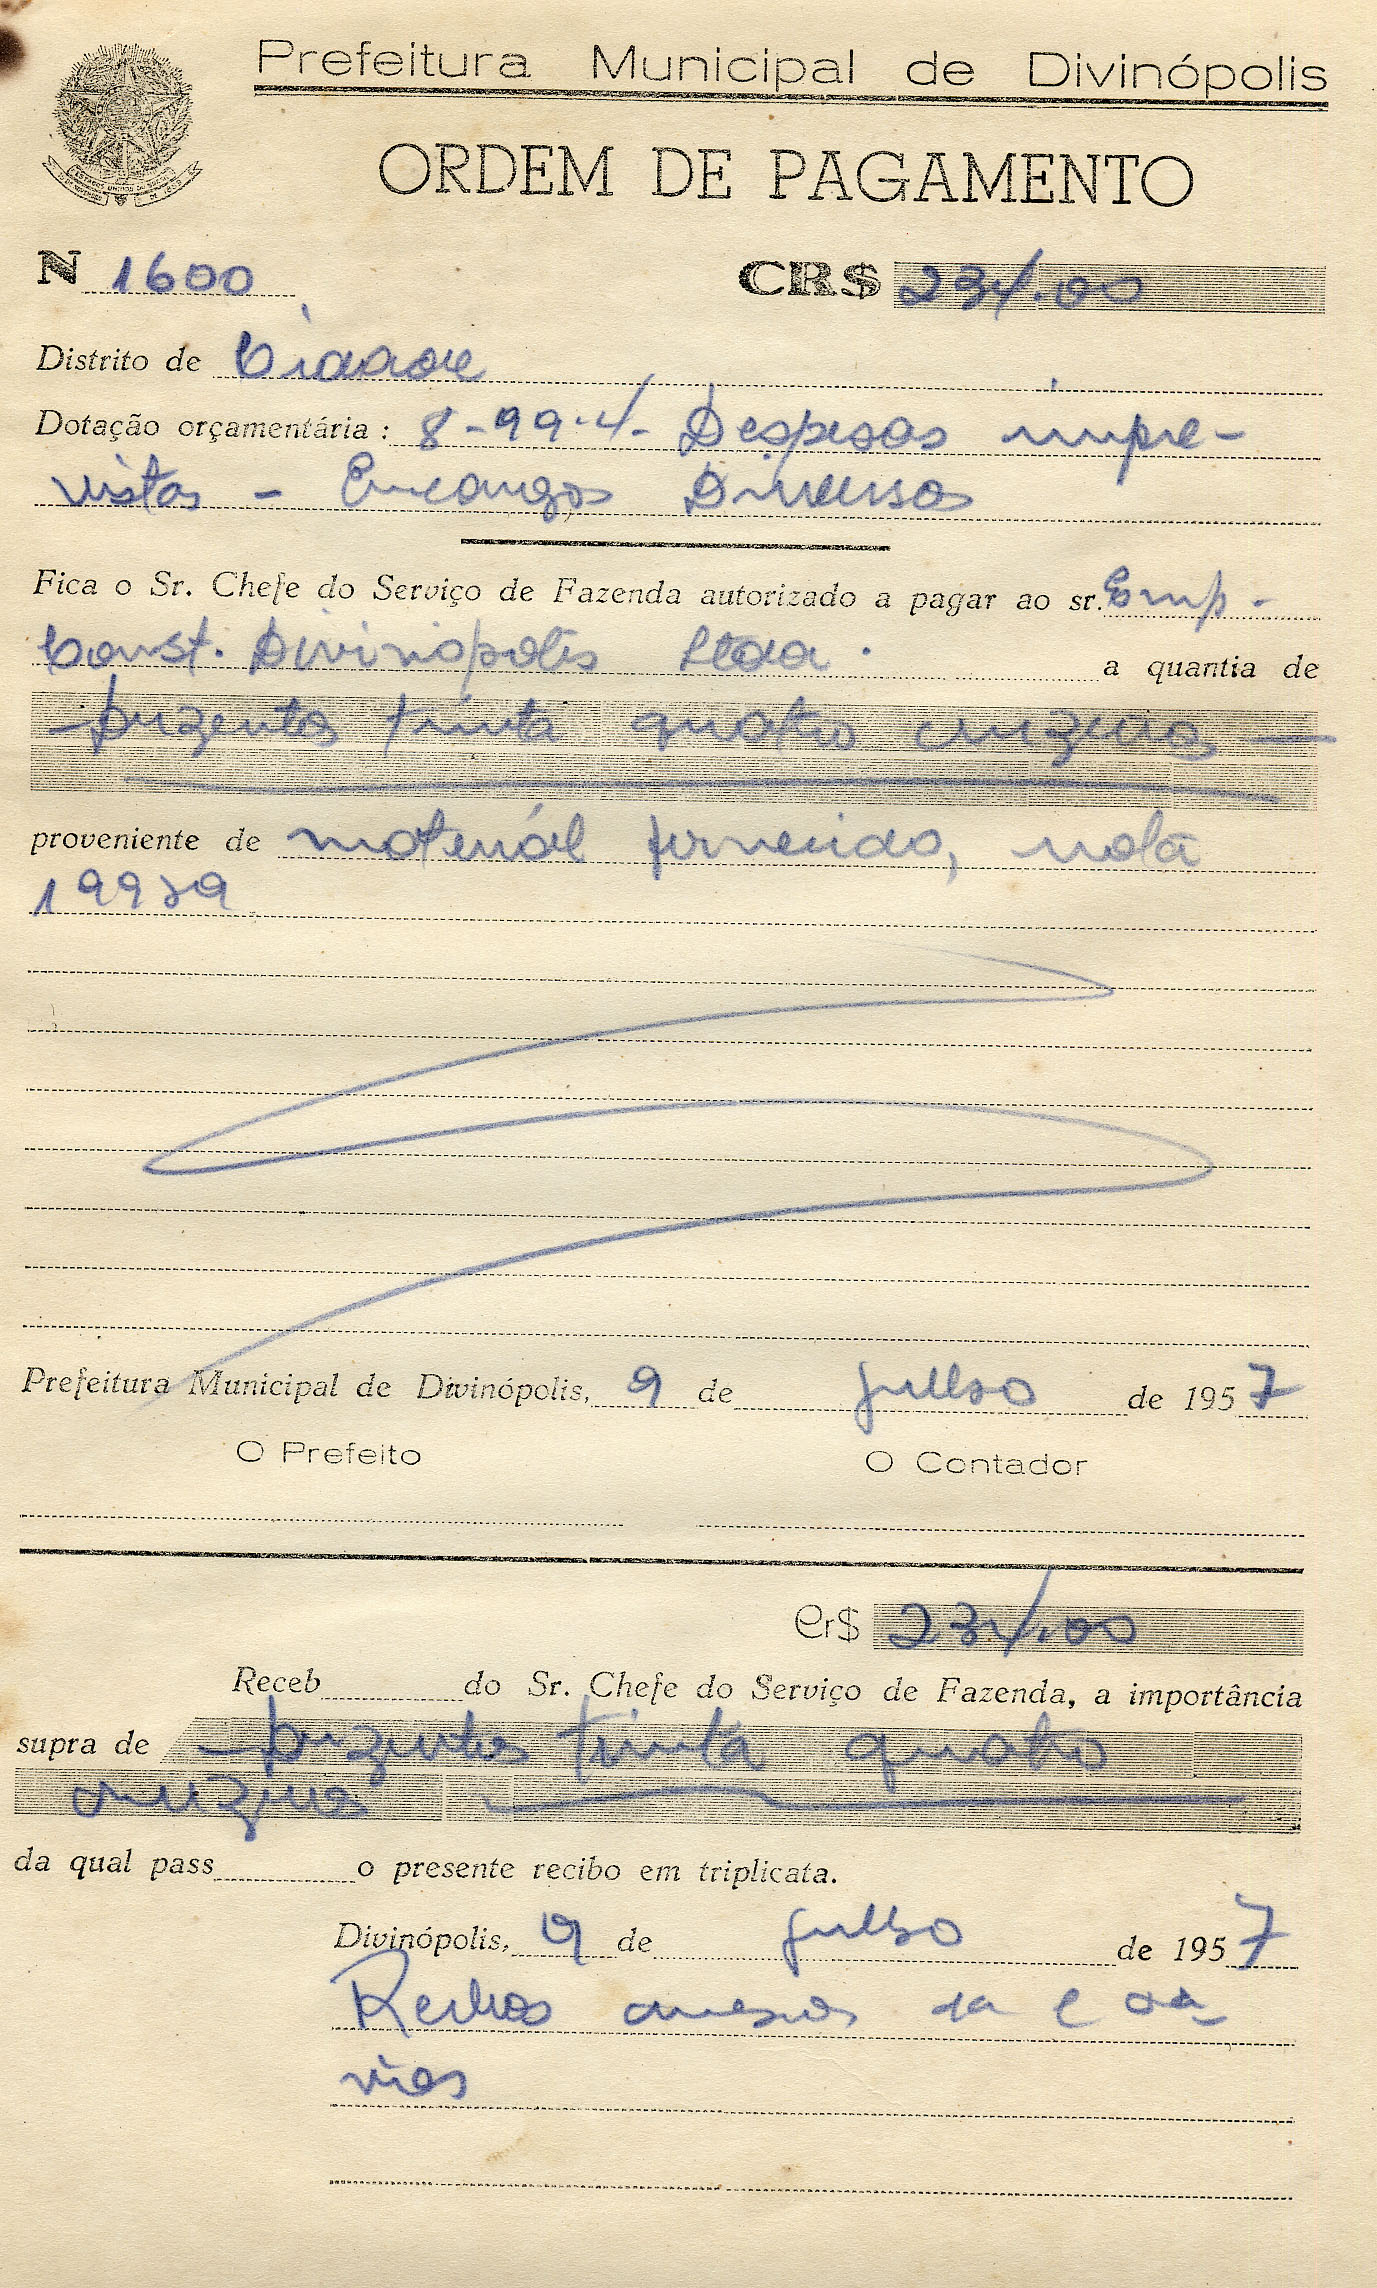 Prefeitura Municipal de Divinópolis
ORDEM DE PAGAMENTO
N 1600 CR$ 234.00
Distrito de Cidade
Dotação orçamentária: 8-99-4- Despesas impre-
vistas - Encargos Diversos
Fica o Sr. Chefe do Serviço de Fazenda autorizado a pagar ao sr. Emp.
Const. Divinópolis Ltda. a quantia de
- Duzentos trinta quatro cruzeiros -
proveniente de material fornecido, nota
Prefeitura Municipal de Divinópolis, 9 de julho de 1957
O Prefeito O Contador
Cr$ 234.00
Receb do Sr. Chefe do Serviço de Fazenda, a importância
supra de - Duzentos trinta quatro
cruzeiros
da qual pass o presente recibo em triplicata.
Divinópolis, 9 de julho de 1957
Recibos anexos 1a e 2a
vias